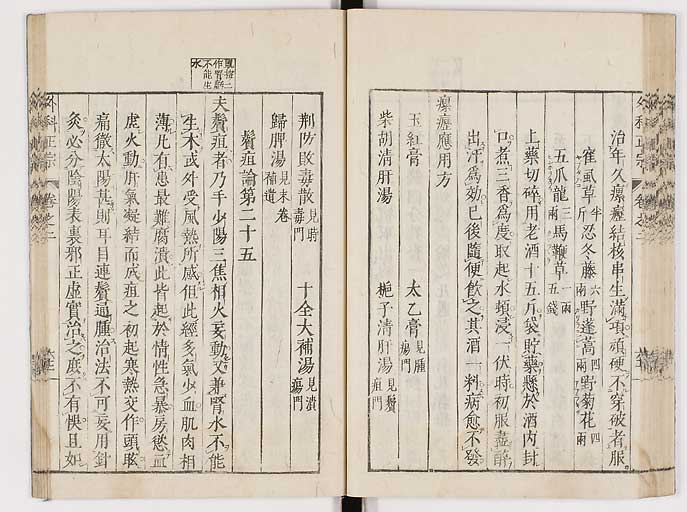 治年久瘰癧結核串生滿項頑硬不穿破者服
崔虱草半斤忍冬藤六兩野蓬蒿四兩野菊花四兩
五爪龍三兩馬鞭草一兩五錢
上藥切碎用老酒十五斤袋貯藥懸於酒內封
口煮三香為度取起水頓浸一伏時初服盡醉
出汗為効已後隨便飲之其酒一料病愈不發
瘰癧應用方
玉紅膏 太乙膏見腫瘍門
柴胡清肝湯 梔子清肝湯見鬢疽門
荊防敗毒散見時毒門 十全大補湯見潰瘍門
歸脾湯見末卷補遺
鬢疽論第二十五
夫鬢疽者乃手少陽三焦相火妄動又兼腎水不能
生木或外受風熱所感但此經多氣少血肌肉相
薄凡有患最難腐潰此皆起於情性急暴房慾血
虛火動肝氣凝結而成疽之初起寒熱交作頭眩
痛徹太陽甚則耳目連鬢通腫治法不可妄用針
灸必分陰陽表裏邪正虛實治之庶不有悞且如
外科正宗 卷之二
外科正宗 卷之二